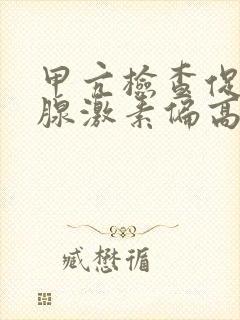 甲亢檢查促
腺激素偏高
臧懋循